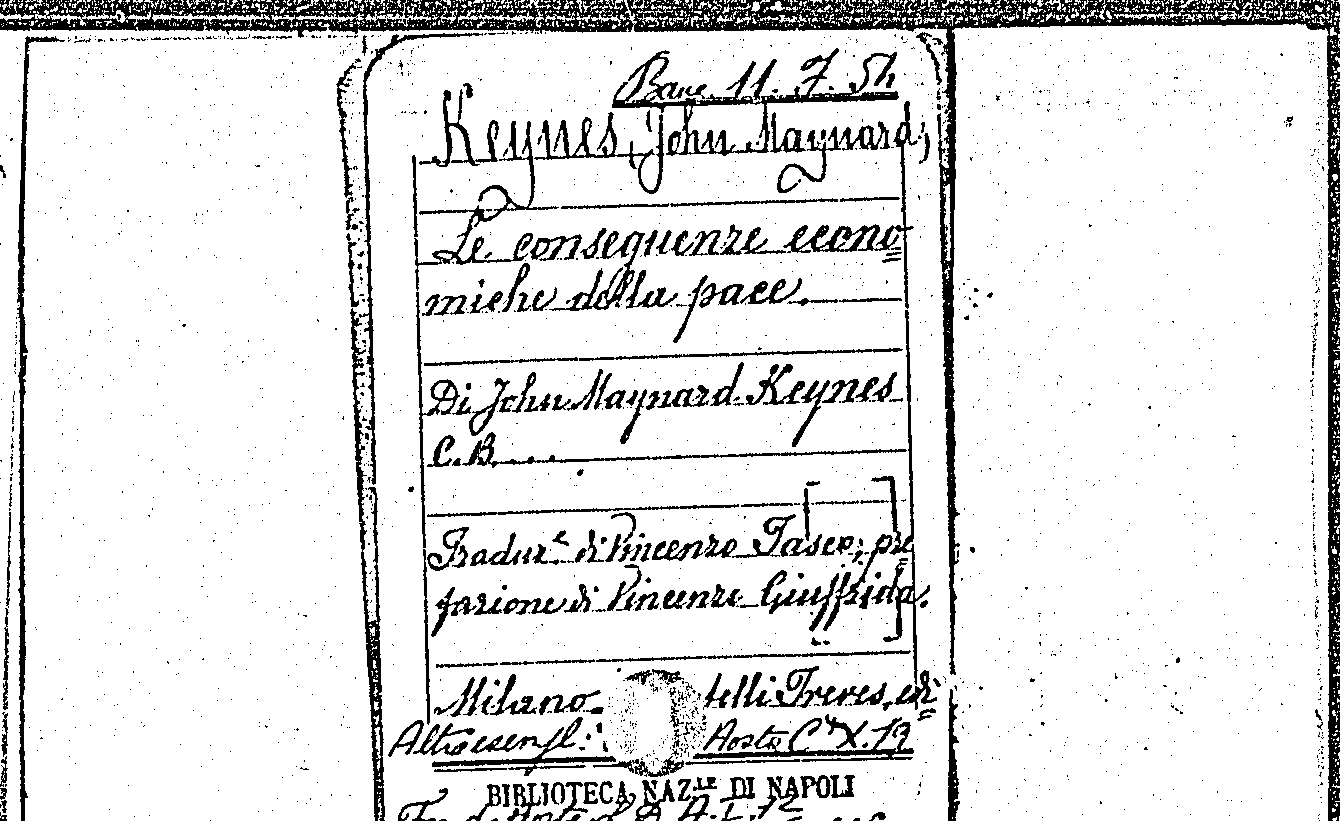 Banc. 11. F. 54
Keynes, John Maynard,
Le conseguenze econo=
miche della pace.
Di John Maynard Keynes
C. B. . . .
Traduz.e di Vincenzo Tasco; pre=
fazione di Vincenzo Giuffrida.
Milano. telli Treves, edi=
Altro esempl: Aosta C X. 19
BIBLIOTECA NAZ.LE DI NAPOLI